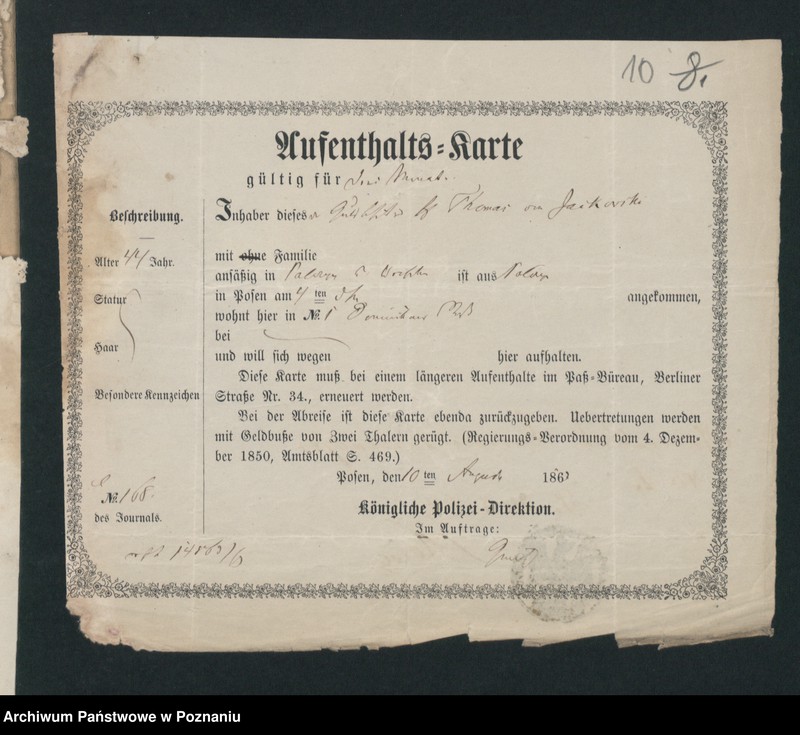 10 8.
Aufenthalts-Karte
gültig für drei Monate
Beschreibung.
Inhaber dieses Thomas von Jackowski
Alter 44 Jahr.
mit ohne Familie
ansäßig in ist aus
Statur
in Posen am ten angekommen,
wohnt hier in №. 1 Dominikaner
bei
Haar
und will sich wegen hier aufhalten.
Diese Karte muß bei einem längeren Aufenthalte im Paß-Büreau, Berliner
Besondere Kennzeichen
Straße Nr. 34., erneuert werden.
Bei der Abreise ist diese Karte ebenda zurückzugeben. Uebertretungen werden
mit Geldbuße von Zwei Thalern gerügt. (Regierungs-Verordnung vom 4. Dezem-
ber 1850, Amtsblatt S. 469.)
Posen, den 10 ten August 186
№. 168
des Journals.
Königliche Polizei-Direktion.
Im Auftrage:
Archiwum Państwowe w Poznaniu